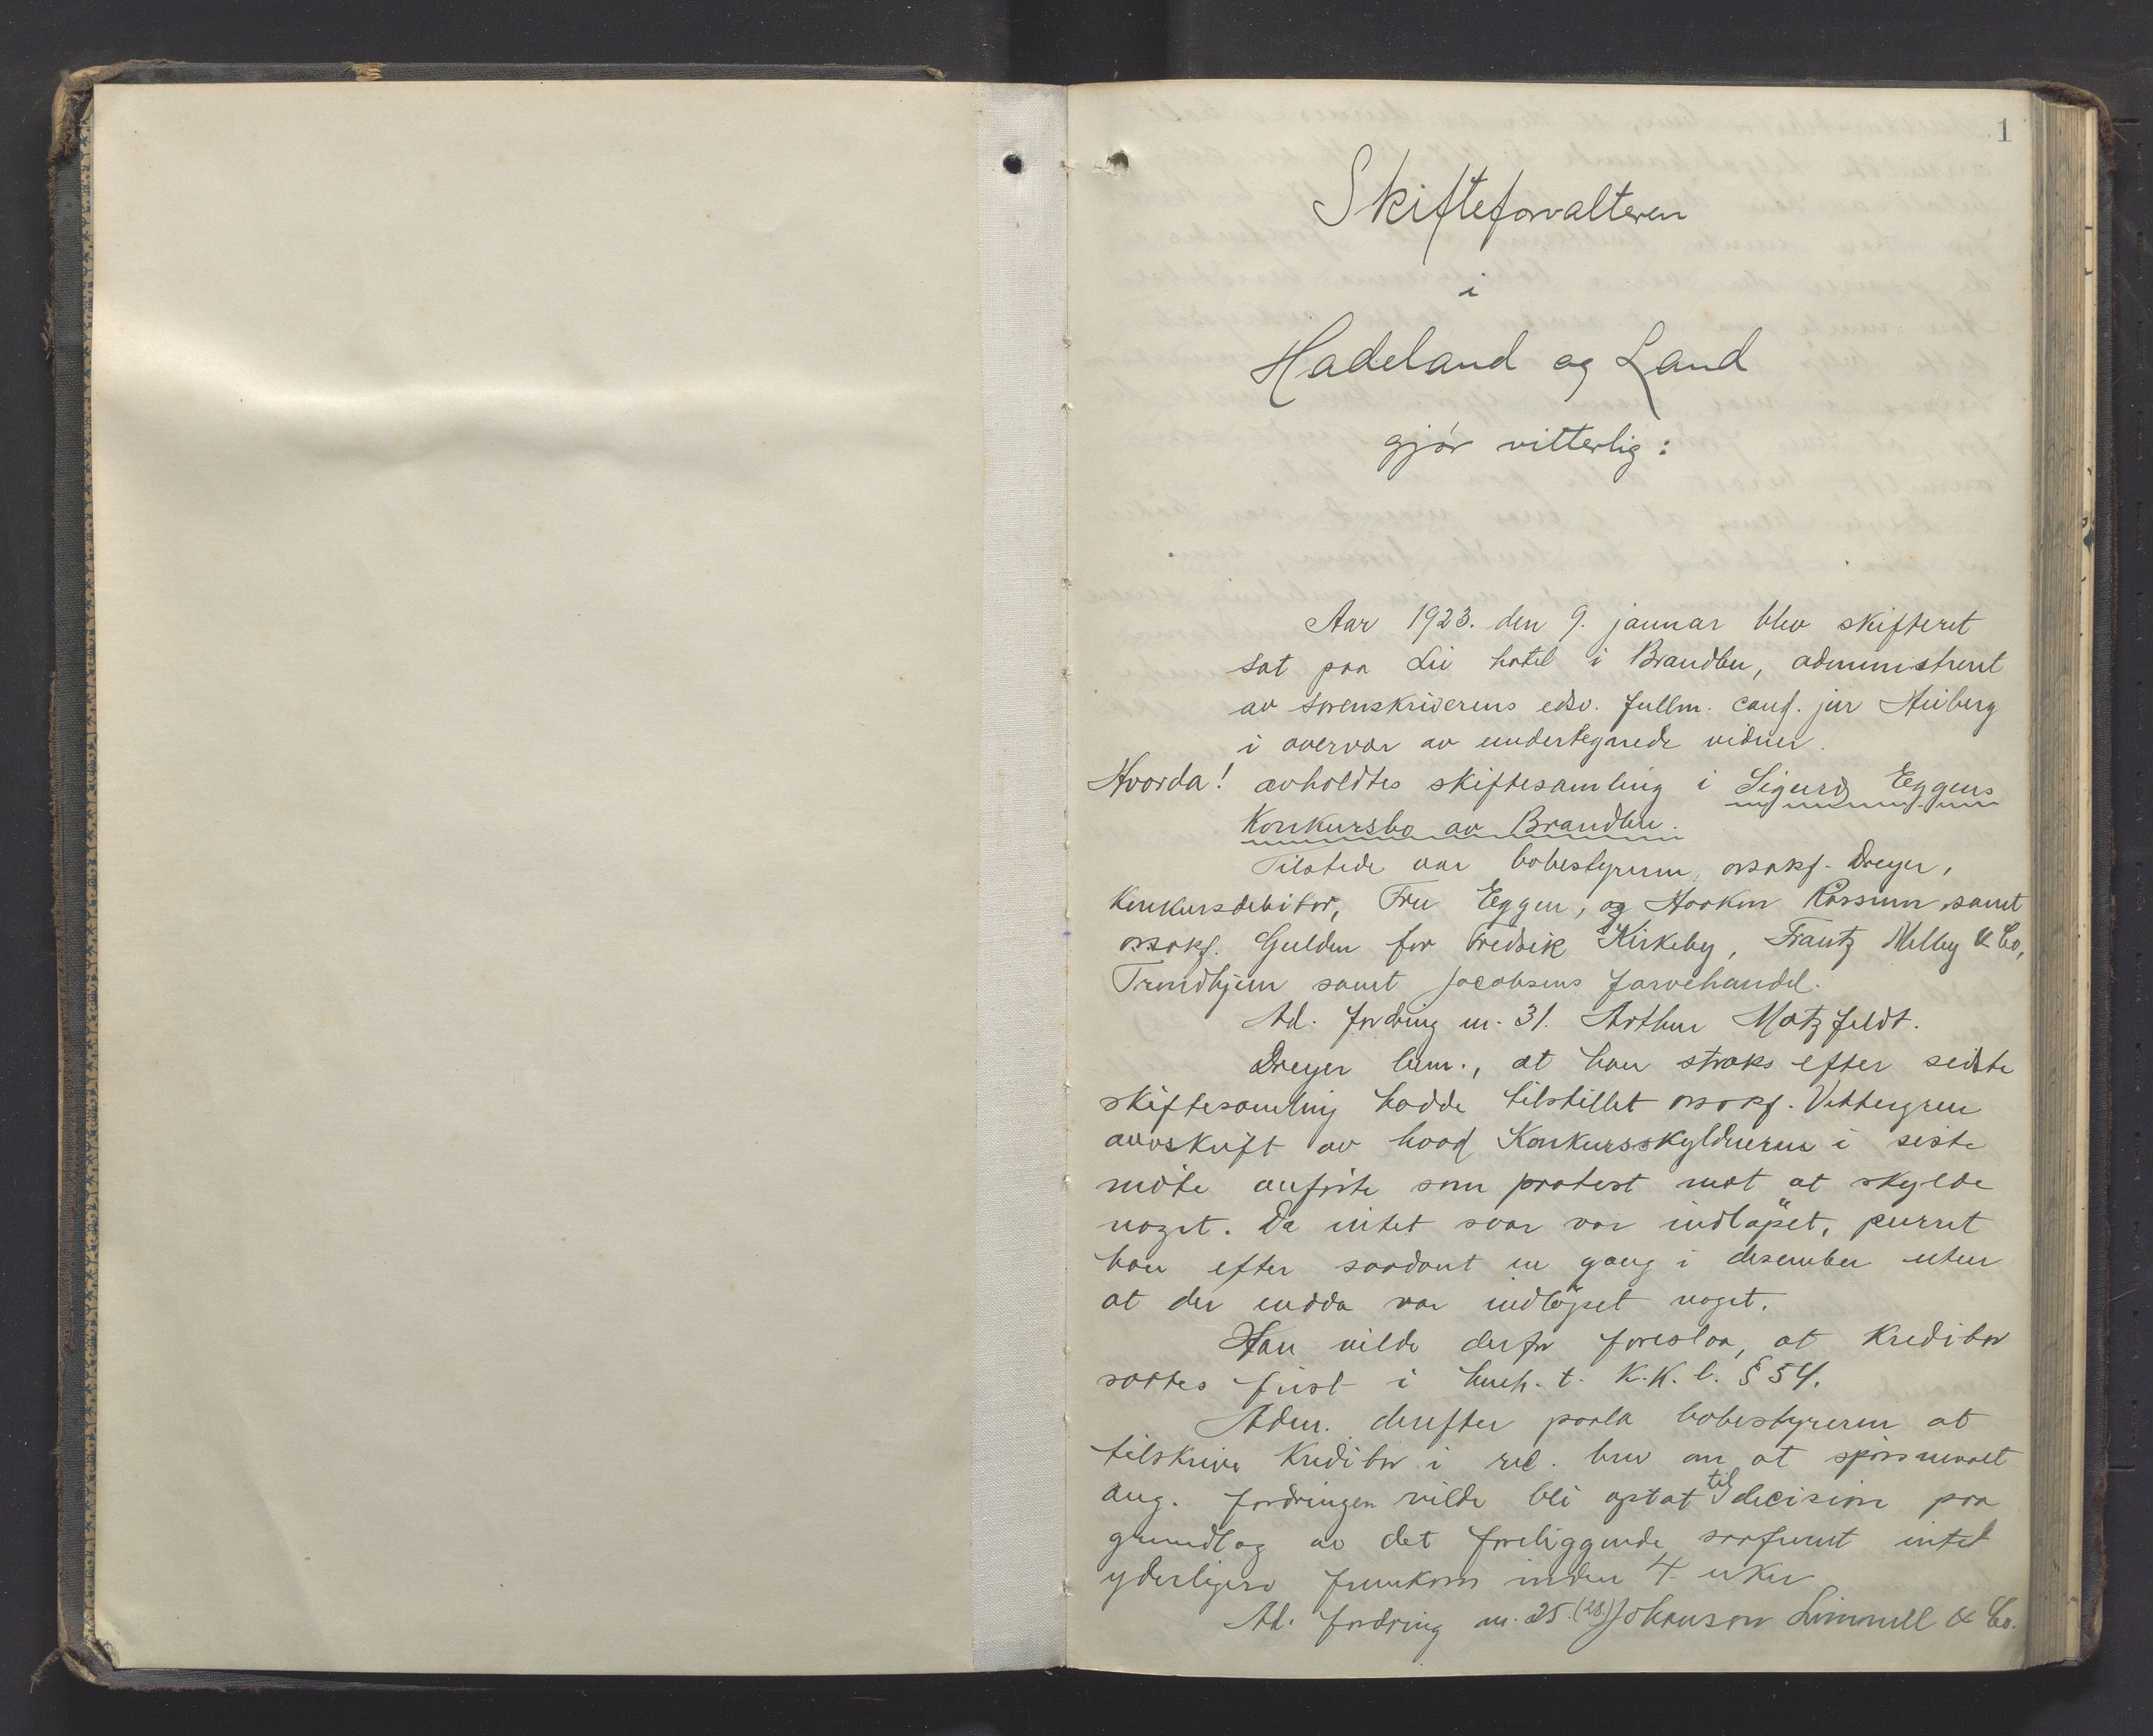 1
Skifteforvalteren
i
Hadeland og Land
gjör vitterlig:
Aar 1923. den 9. januar blev skifteret
sat paa Lie hotel i Brandbu, administrert
av sorenskriverens edsv. fullm. cand. jur Heiberg
i overvær av undertegnede vidner.
Hvorda! avholdtes skiftesamling i Sigurd Eggens
Konkursbo av Brandbu.
Tilstede var bobestyreren, orsakf. Dreyer,
Konkursdebitor, Fru Eggen, og Haakon Røssum samt
orsakf. Gulden for Fredrik Kirkeby, Frantz Melby & Co,
Trondhjem samt Jacobsens farvehandel.
Ad. fordring nr. 31. Arthur Motzfeldt.
Dreyer bem., at han straks efter sidste
skiftesamling hadde tilstillet orsakf. Vettergren
avskrift av hvad Konkursskyldneren i siste
möte anförte som protest mot at skylde
noget. Da intet svar var indlöpet, purret
han efter saadant en gang i desember uten
at der endda var indlöpet noget.
Han vilde derfor foreslaa, at Kreditor
sattes frist i henh. t. K.K.l. § 54.
Adm. derefter paala bobestyreren at
tilskrive Kreditor i rec. brev om at spörsmaalet
ang. fordringen vilde bli optat til decision paa
grundlag av det foreliggende saafremt intet
yderligere fremkom inden 4 uker
Ad. fordring nr. 25. (28.) Johanson Limmell & Co.